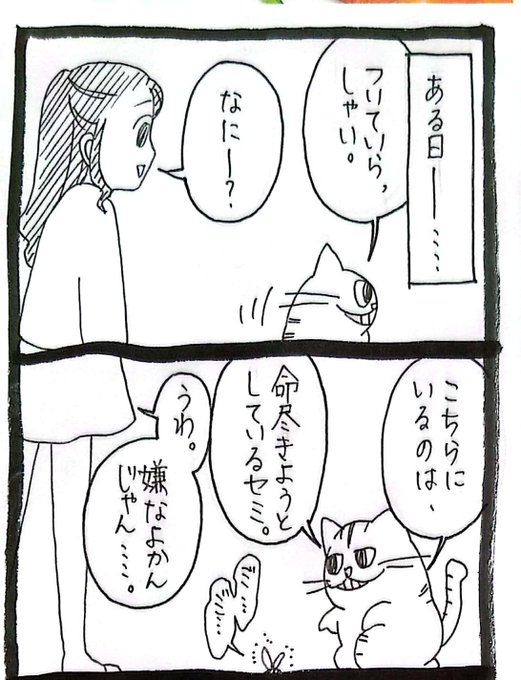 ある日ー……
ついていら、
しゃい。
なにー?
こちらに
いるのは、
命尽きようと
しているセミ。
うわ。
嫌なよかん
じゃん……。